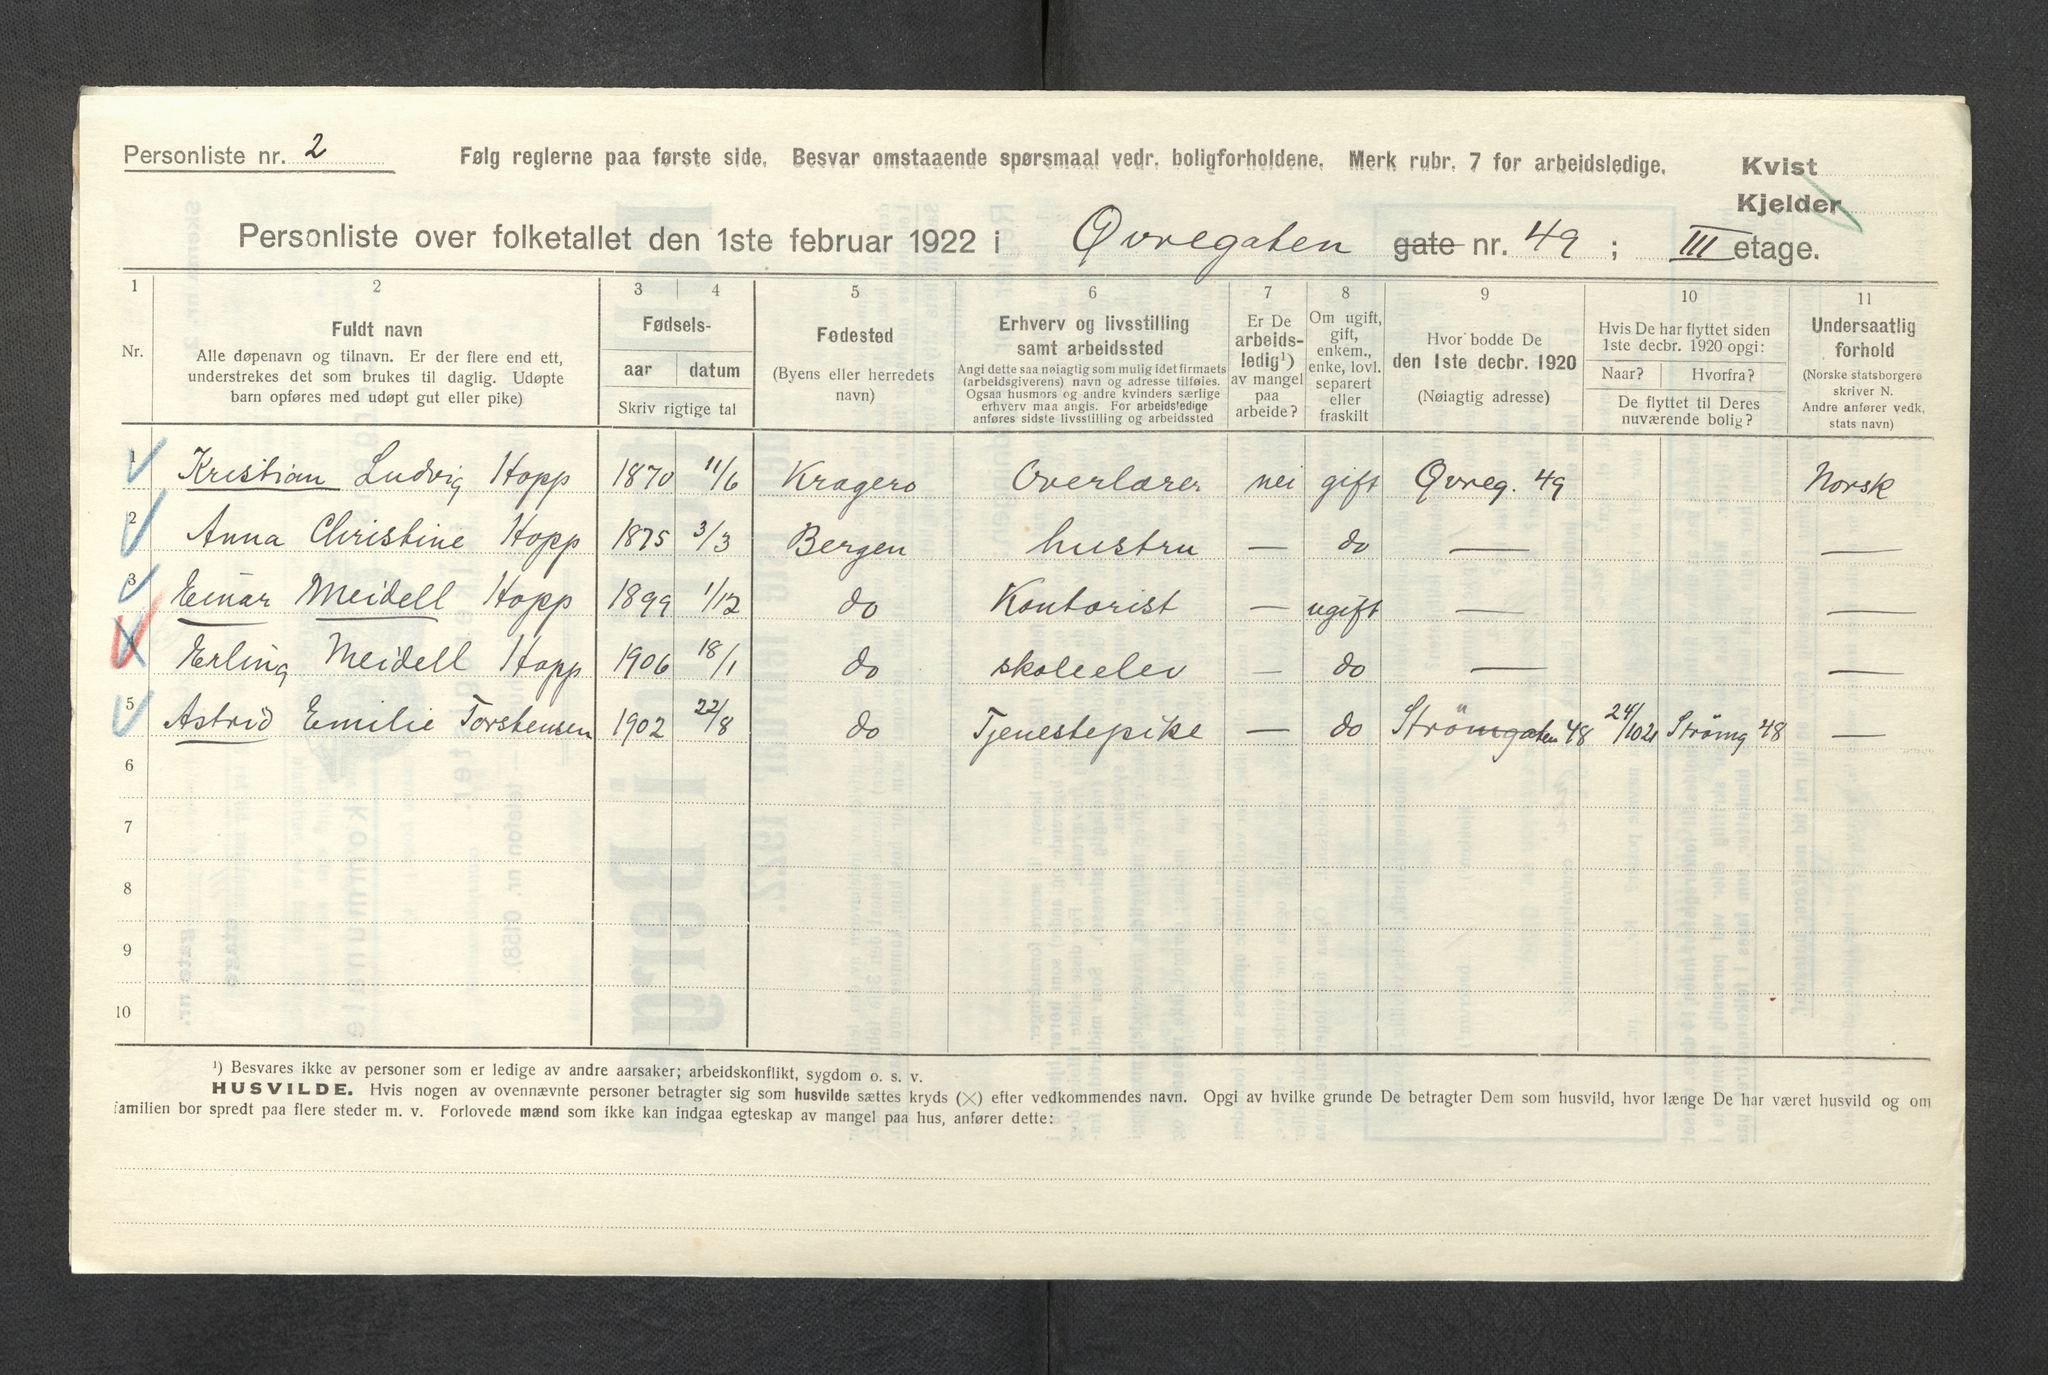 Personliste nr. 2 Følg reglerne paa første side. Besvar omstaaende spørsmaal vedr. boligforholdene. Merk rubr. 7 for arbeidsledige. Kvist
Kjelder
Personliste over folketallet den 1ste februar 1922 i Øvregaten gate nr. 49; III etage.
1 2 3 4 5 6 7 8 9 10 11
Nr.
Fuldt navn
Alle døpenavn og tilnavn. Er der flere end ett,
understrekes det som brukes til daglig. Udøpte
barn opføres med udøpt gut eller pike)
Fødsels-
aar datum
Skriv rigtige tal
Fødested
(Byens eller herredets
navn)
Erhverv og livsstilling
samt arbeidssted
Angi dette saa nøiaktig som mulig idet firmaets
(arbeidsgiverens) navn og adresse tilføies.
Ogsaa husmors og andre kvinders særlige
erhverv maa angis. For arbeidsledige
anføres sidste livsstilling og arbeidssted
Er De
arbeids-
ledig¹)
av mangel
paa
arbeide?
Om ugift,
gift,
enkem.,
enke, lovl.
separert
eller
fraskilt
Hvor bodde De
den 1ste decbr. 1920
(Nøiagtig adresse)
Hvis De har flyttet siden
1ste decbr. 1920 opgi:
Naar? Hvorfra?
De flyttet til Deres
nuværende bolig?
Undersaatlig
forhold
(Norske statsborgere
skriver N.
Andre anfører vedk.
stats navn)
1 Kristian Ludvig Hopp 1870 11/6 Kragerø Overlærer nei gift Øvreg. 49 Norsk
2 Anna Christine Hopp 1875 3/3 Bergen hustru — do — —
3 Einar Meidell Hopp 1899 1/12 do Kontorist — ugift — —
4 Erling Meidell Hopp 1906 18/1 do skoleelev — do — —
5 Astrid Emilie Torstensen 1902 22/8 do Tjenestepike — do Strömgaten 48 24/10 21 Strömg 48 —
6
7
8
9
10
¹) Besvares ikke av personer som er ledige av andre aarsaker; arbeidskonflikt, sygdom o. s. v.
HUSVILDE. Hvis nogen av ovennævnte personer betragter sig som husvilde sættes kryds (×) efter vedkommendes navn. Opgi av hvilke grunde De betragter Dem som husvild, hvor længe De har været husvild og om
familien bor spredt paa flere steder m. v. Forlovede mænd som ikke kan indgaa egteskap av mangel paa hus, anfører dette: